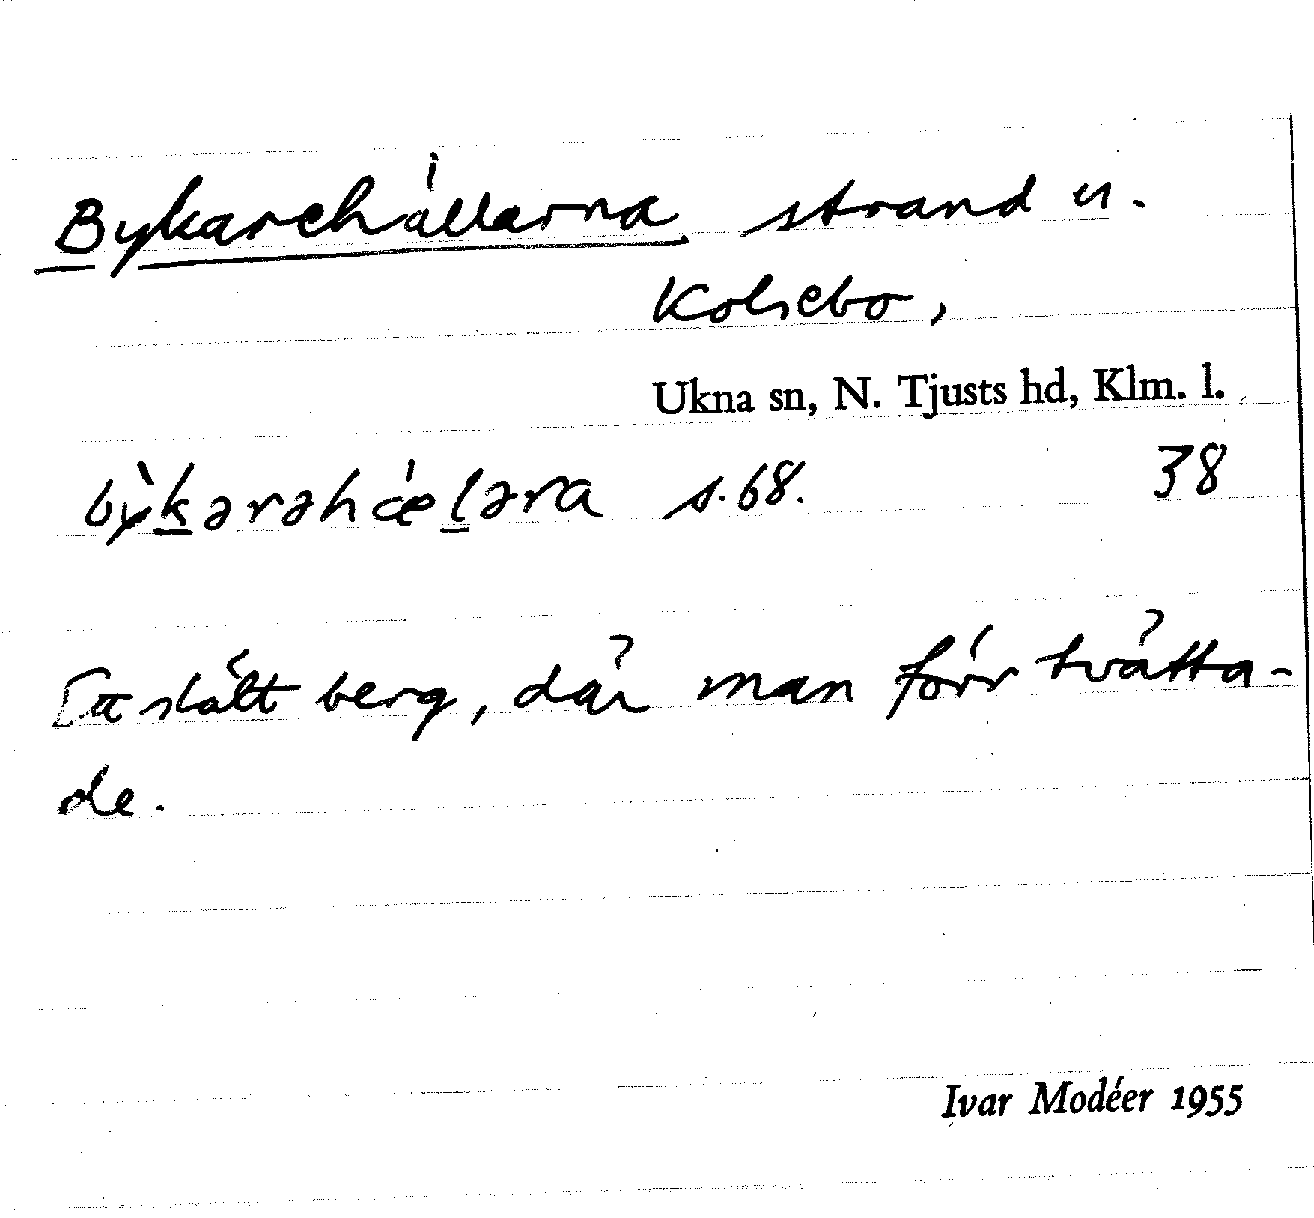 Bykarehällarna strand u.
Kolsebo,
Ukna sn, N. Tjusts hd, Klm. l.
bỳk̲ərəhæ̍l̲əra s. 68. 38
Ett slätt berg, där man förr tvätta-
de.
Ivar Modéer 1955